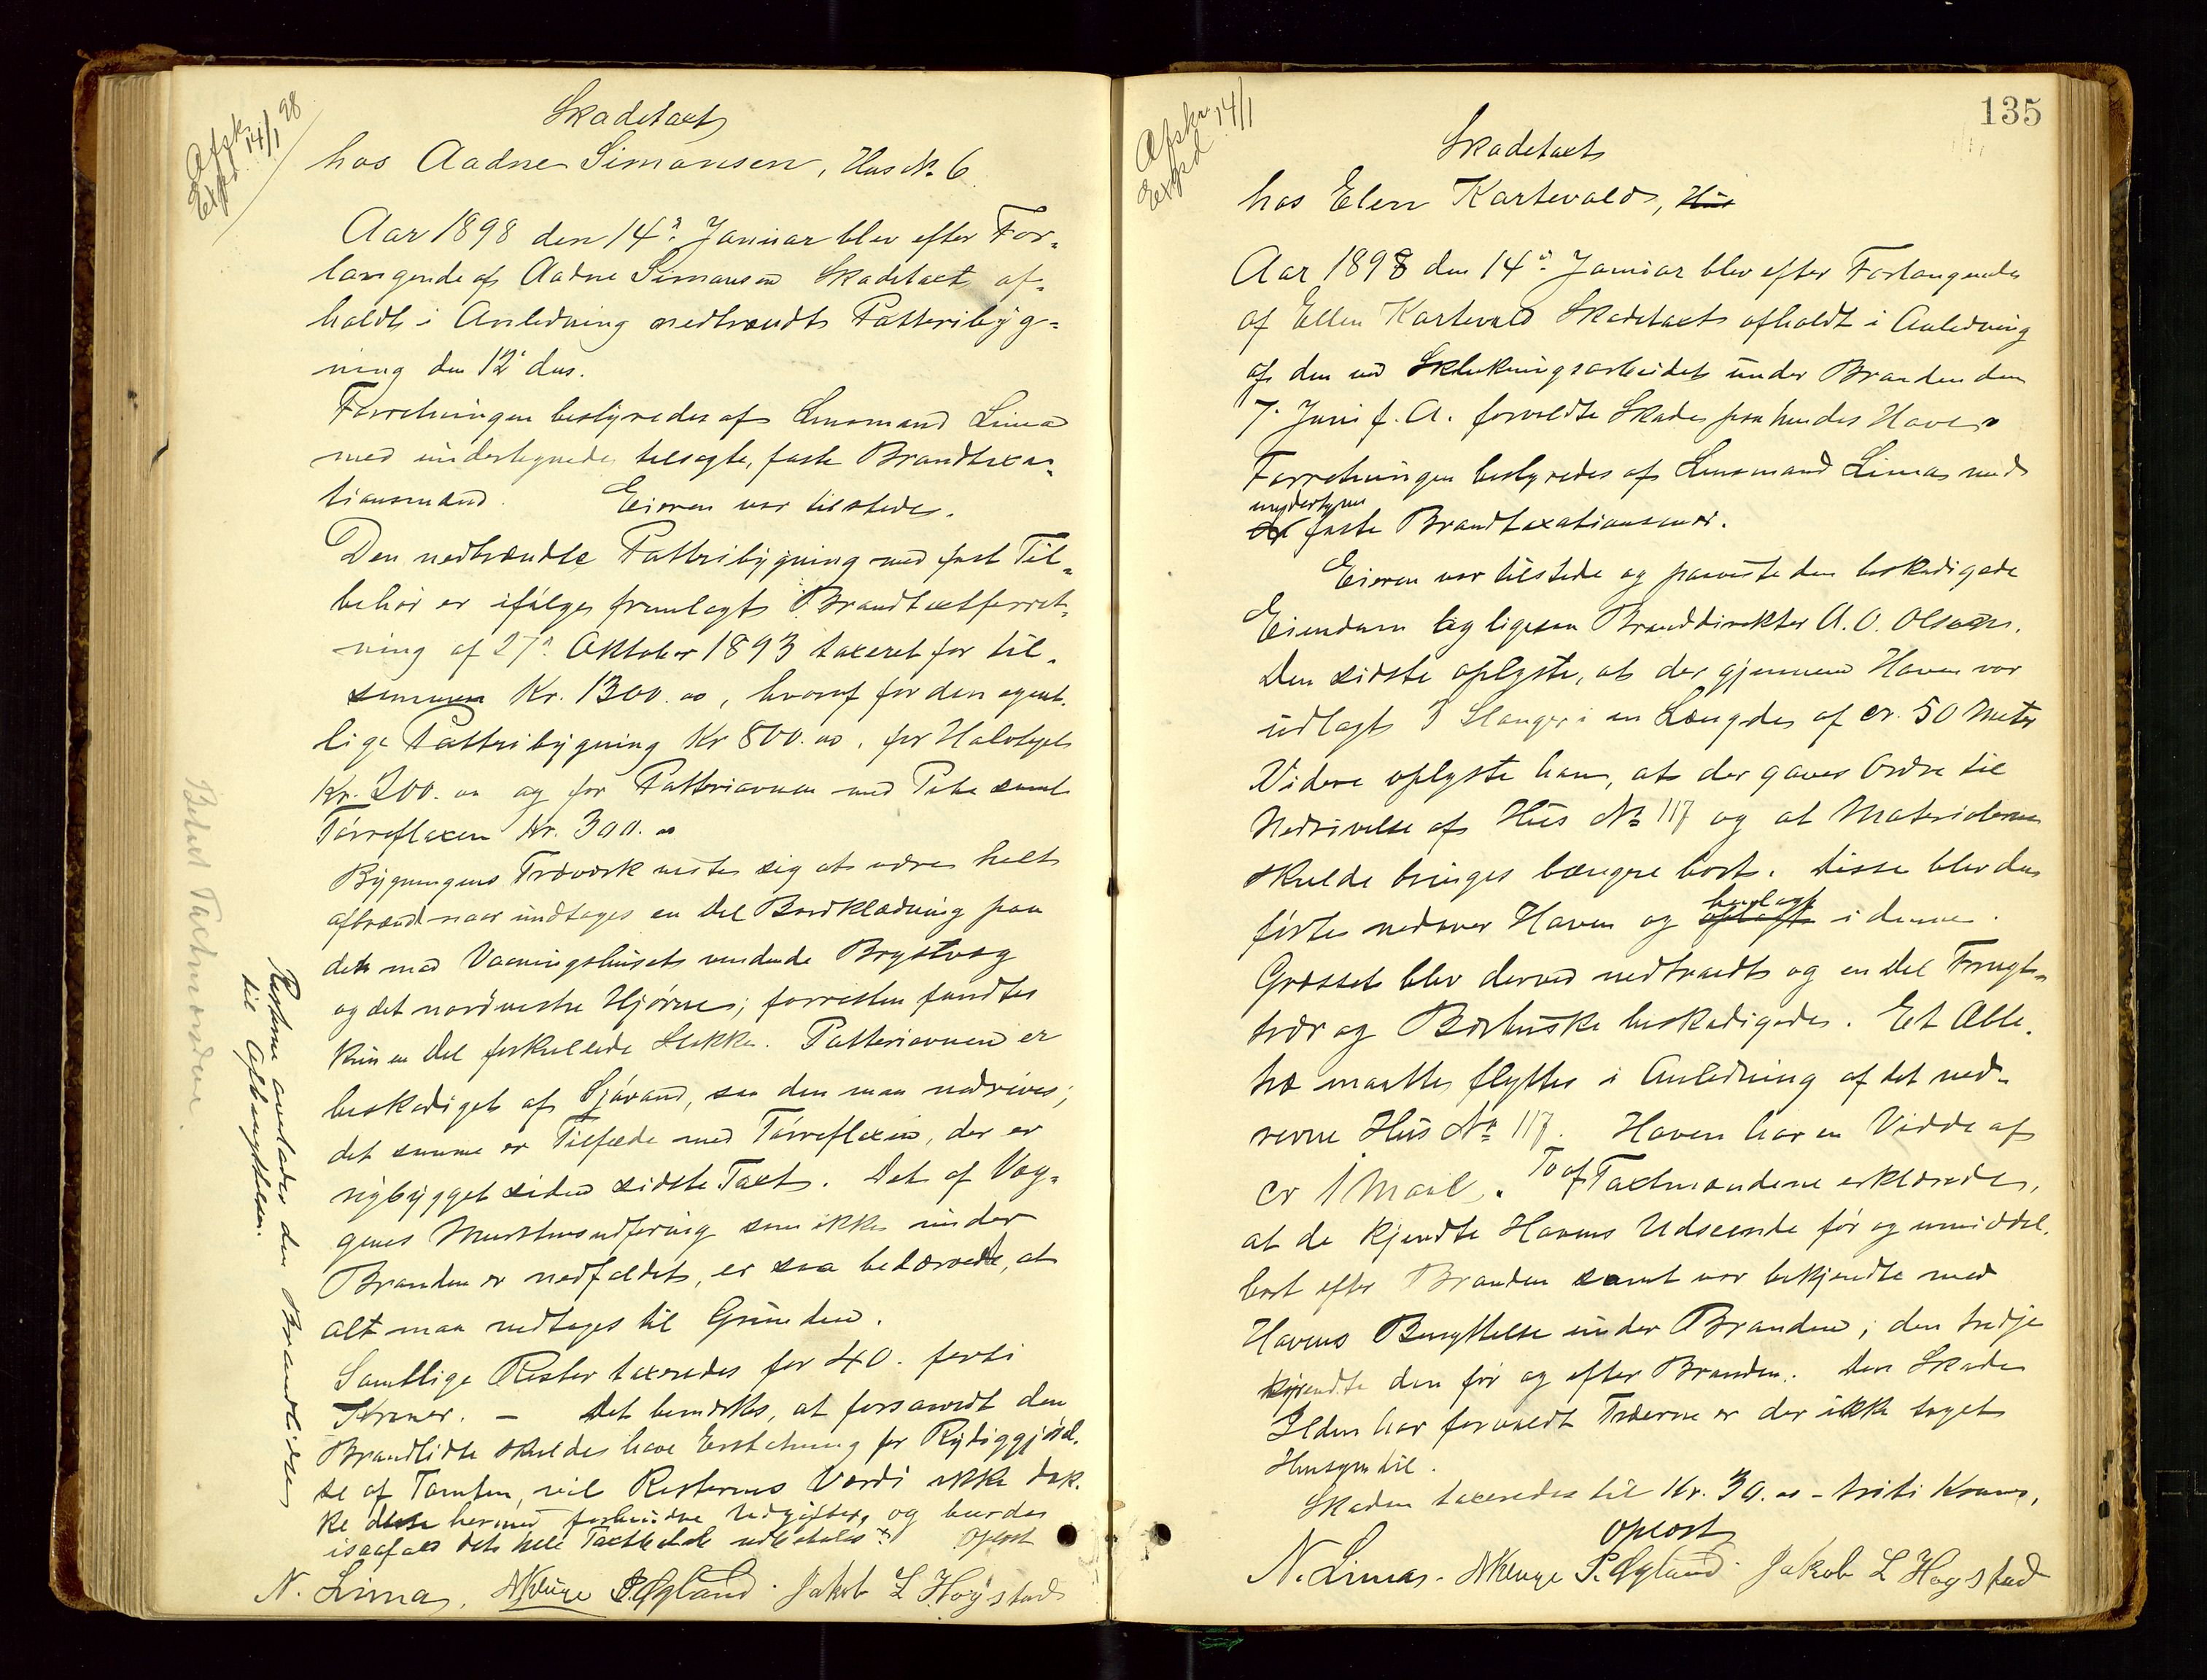 Afsk. 14/1 98
Expd.
Skadetaxt
hos Aadne Simonsen, Hus № 6.
Aar 1898 den 14de Januar blev efter For-
langende af Aadne Simonsen Skadetaxt af-
holdt i Anledning nedbrændt Potteribyg-
ning den 12te ds.
Forretningen bestyredes af Lensmand Lima
med undertegnede tilsagte, faste Brandtaxa-
tionsmænd. Eieren var tilstede.
Den nedbrændte Potteribygning med fast Til-
behør er ifølge fremlagt Brandtaxtforret-
ning af 27de Oktober 1893 taxeret for til-
sammen Kr. 1300.00, hvoraf for den egent-
lige Potteribygning Kr 800.00, for Halvtaget
Kr. 200.00 og for Potteriovnen med Pibe samt
Tørreflaxen Kr. 300.00
Bygningens Træværk viste sig at være helt
afbrændt naar undtages en Del Bordklædning paa
det mod Vaaningshuset vendende Brystvæg
og det nordvestre Hjørne; forresten fandtes
kun en Del forkullede Stokke. Potteriovnen er
beskadiget af Sjøvand, saa den maa nedrives;
det samme er Tilfælde med Tørreflaxen, der er
nybygget siden sidste Taxt. Det af Væg-
genes Murstensudforing som ikke under
Branden er nedfaldet, er saa bedærvet, at
alt maa nedtages til Grunden.
Samtlige Rester taxeredes for 40. forti
Kroner. — Det bemærkes, at forsaavidt den
Brandlidte skulde have Erstatning for Rydiggjørel-
se af Tomten, vil Resternes Værdi ikke dæk-
ke disse hermed forbundne Udgifter, og burde
isaafald det hele Taxtbeløb udbetales x) Oplæst
N. Lima. N Kluge P. Egland. Jakob L Høystad
Resterne overlades den Brandlidte
til Afbenyttelse.
Betalt Taxtmændene.
135
Afskr. 14/1
Expd
Skadetaxt
hos Elen Kartevold, Hus
Aar 1898 den 14de Januar blev efter Forlangende
af Ellen Kartevold Skadetaxt afholdt i Anledning
af den ved Slukningsarbeidet under Branden den
7. Juni f. A. forvoldte Skade paa hendes Have.
Forretningen bestyredes af Lensmand Lima med
undertegn
faste Brandtaxationsmænd.
Eieren var tilstede og paaviste den beskadigede
Eiendom og ligesaa Branddirektør A. O. Olsen.
Den sidste oplyste, at der gjennem Haven var
udlagt 3 Slanger i en Længde af cr. 50 Meter
Videre oplyste han, at der gaves Ordre til
Nedrivelse af Hus № 117 og at Materialerne
skulde bringes længere bort. Disse blev da
førte nedover Haven og oplagt henlagt i denne.
Græsset blev derved nedtraadt og en Del Frugt-
trær og Bærbuske beskadigede. Et Æble-
træ maatte flyttes i Anledning af det ned-
revne Hus № 117. Haven har en Vidde af
cr 1 Maal. To af Taxtmændene erklærede,
at de kjendte Havens Udseende før og umiddel-
bart efter Branden samt var bekjendte med
Havens Benyttelse under Branden; den tredje
kjendte den før og efter Branden. Den Skade
Ilden har forvoldt Træerne er der ikke taget
Hensyn til.
Skaden taxeredes til Kr. 30.00 - triti Kroner.
Oplæst
N. Lima. N Kluge P. Egland. Jakob L Høystad